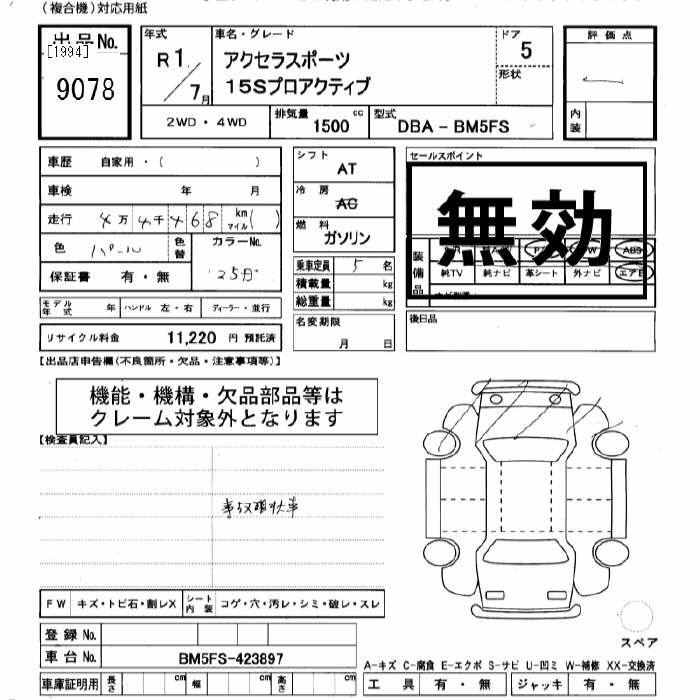 (複合機)対応用紙
出品No.
[1994]
9078
年式
R1/7月
車名・グレード
アクセラスポーツ
15Sプロアクティブ
ドア
5
形状
評価点
内装
2WD・4WD
排気量
1500 cc
型式
DBA - BM5FS
車歴 自家用・( )
車検 年 月
走行 万 千 468 km マイル( )
色 パール
色替
カラーNo.
25D
保証書 有・無
モデル年式 年
ハンドル 左・右
ディーラー・並行
リサイクル料金 11,220 円 預託済
シフト
AT
冷房
AC
燃料
ガソリン
乗車定員 5 名
積載量 kg
総重量 kg
名変期限
月 日
セールスポイント
無効
装備品
ABS
純TV 純ナビ 革シート 外ナビ エアB
後日品
【出品店申告欄(不良箇所・欠品・注意事項等)】
機能・機構・欠品部品等は
クレーム対象外となります
【検査員記入】
事故現状車
FW キズ・トビ石・割レX
シート内装 コゲ・穴・汚レ・シミ・破レ・スレ
登録No.
車台No. BM5FS-423897
車庫証明用 長さ cm 幅 cm 高さ cm
スペア
A-キズ C-腐食 E-エクボ S-サビ U-凹ミ W-補修 XX-交換済
工具 有・無 ジャッキ 有・無